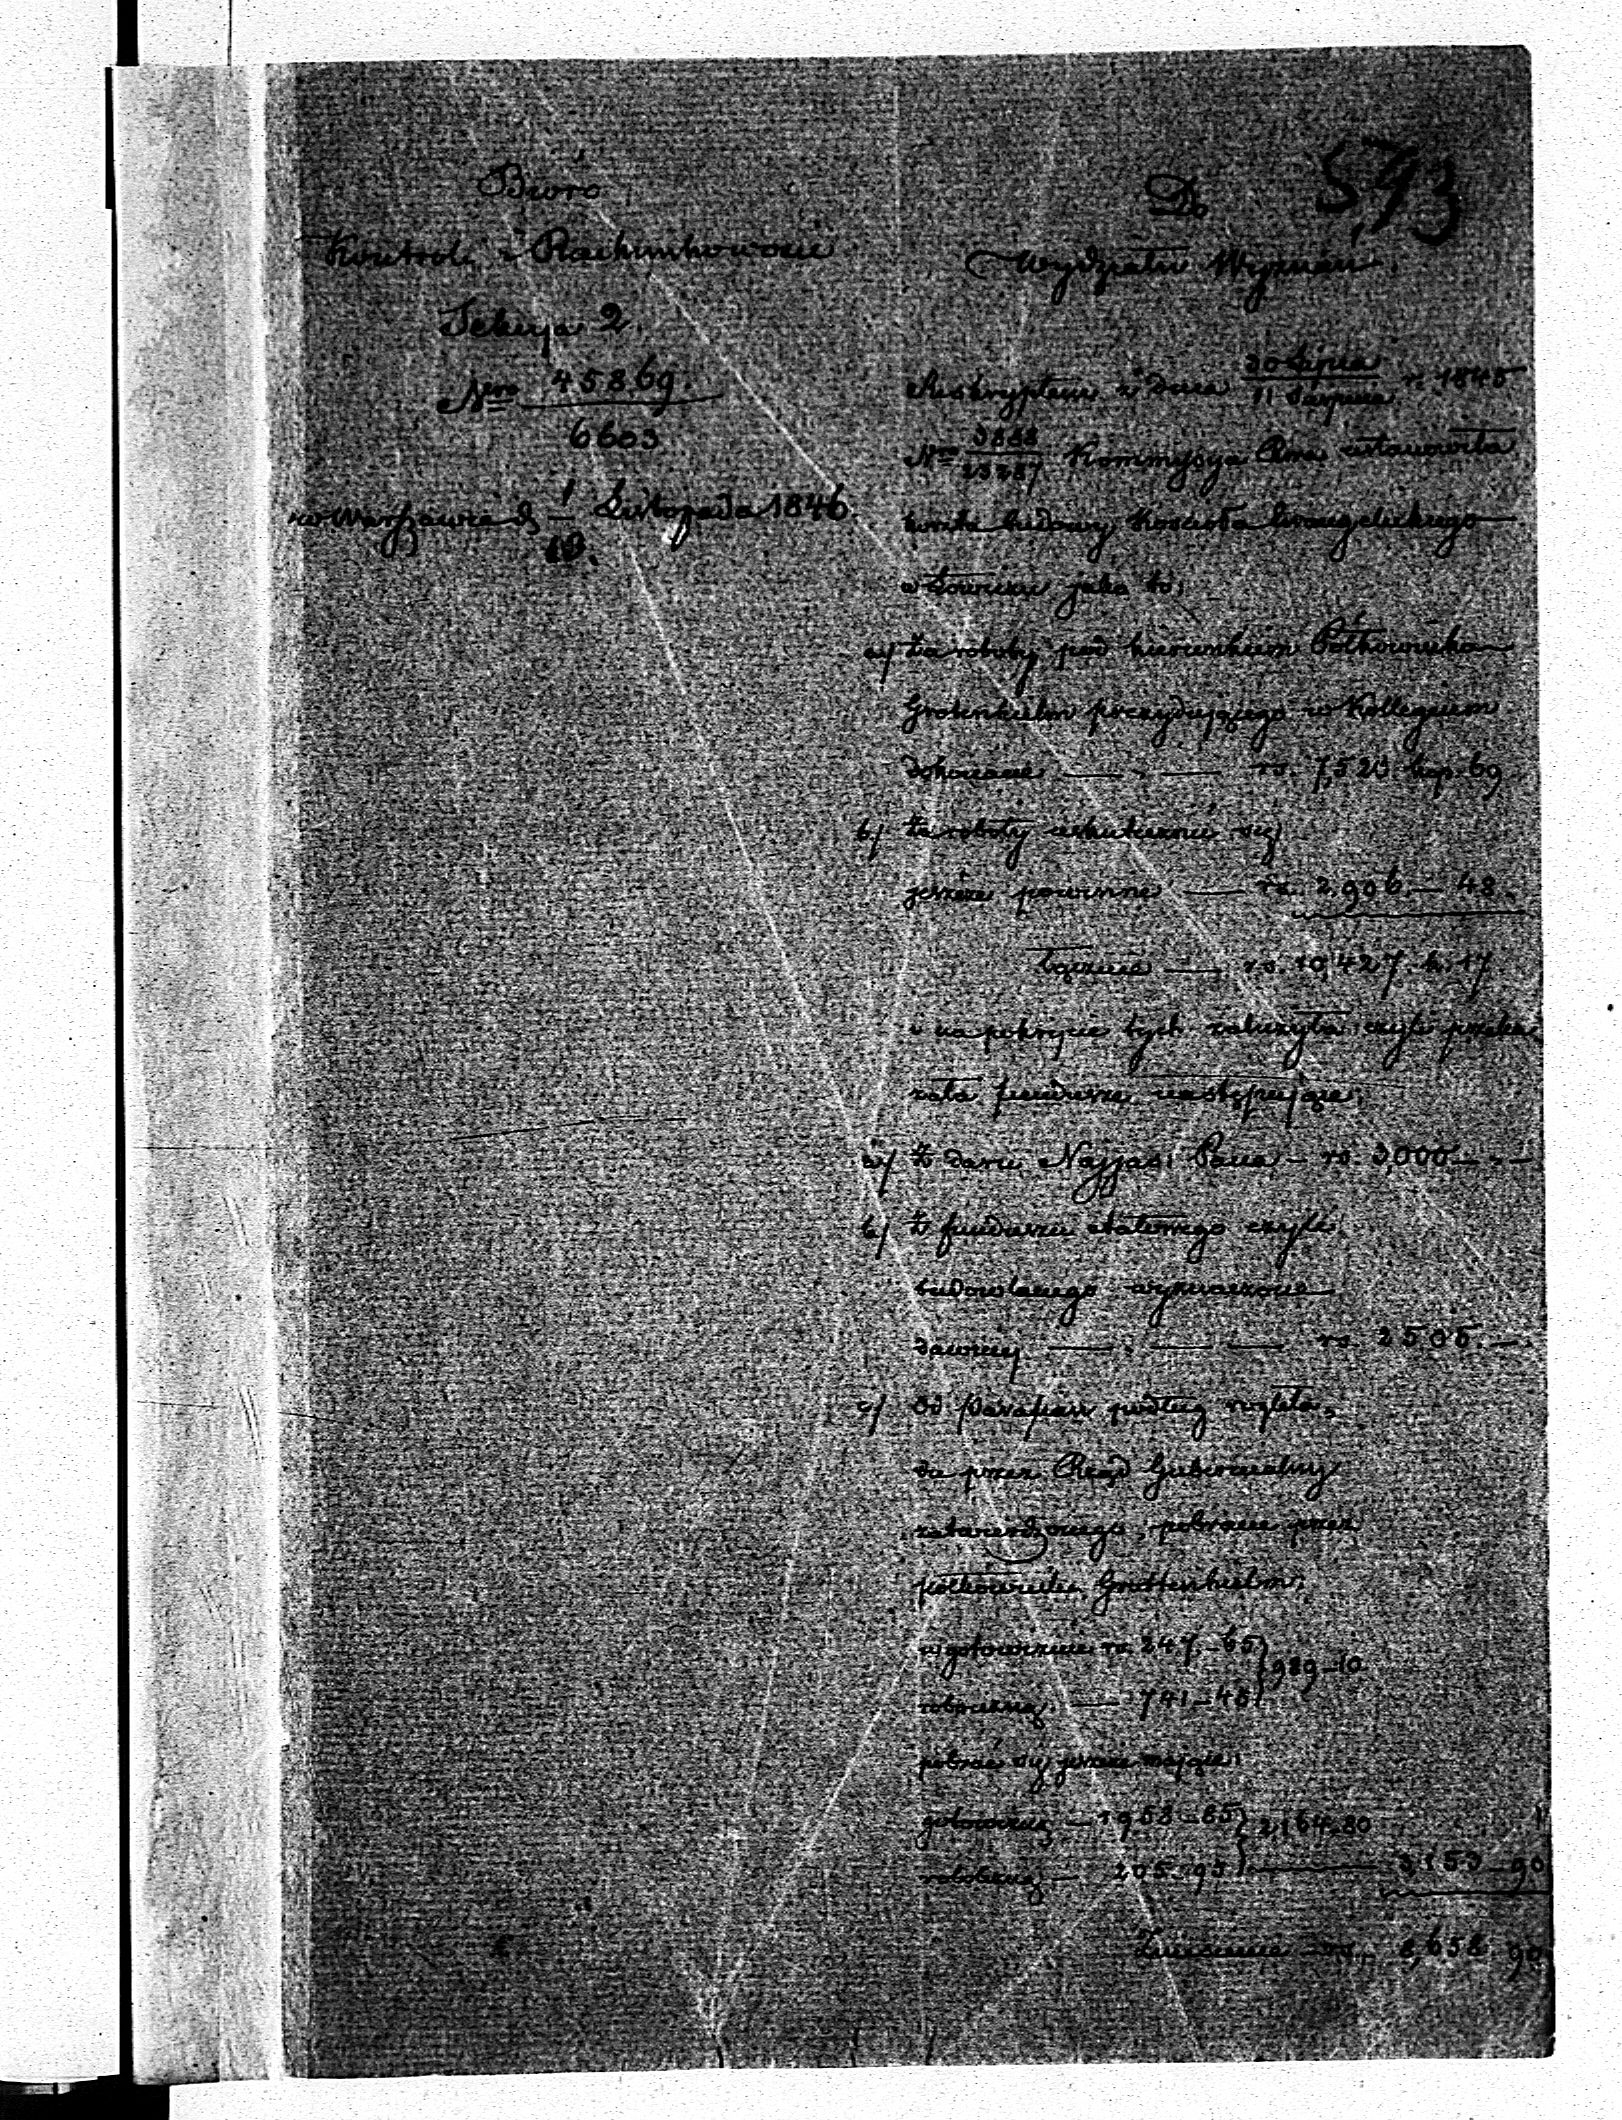 593
Biuro
Kontroli i Rachunkowości
Sekcya 2
Nro 45869.
6603
w Warszawie d. 1/13. Listopada 1846.
Do
Wydziału Wyznań.
Reskryptem z dnia 30 Lipca / 11 Sierpnia r. 1845
Nro 3888 / 23287 Kommissya Rzą. ustanowiła
koszta budowy Kościoła Ewangelickiego
w Łowiczu jako to:
a/ Za roboty pod kierunkiem Półkownika
Grotenhielm prezydującego w Kollegium
dokonane — „ — rs. 7,520 kop. 69
b/ Za roboty uskutecznić się
jeszcze powinne — rs. 2,906 — 48.
łącznie — rs. 10,427. k. 17
i na pokrycie tych zaliczyła czyli przeka
zała fundusze następujące:
a/ Z daru Najjaś: Pana — rs 3,000 — „ —
b/ Z funduszu etatowego czyli
budowlanego wyznaczone
dawniej — „ — — rs. 2505. —
c/ Od Parafian podług rozkła„
du przez Rząd Gubernialny
zatwierdzonego, pobrane przez
półkownika Grottenhielm,
w gotowiźnie rs. 247 — 65
989 — 10
robocizną — 741 — 45
pobrać się jeszcze mające:
gotowizną — 1958 — 85
2,164 — 80
robocizną — 205 — 95 — 3153 — 90
Znaczenie rs. 8,658 90